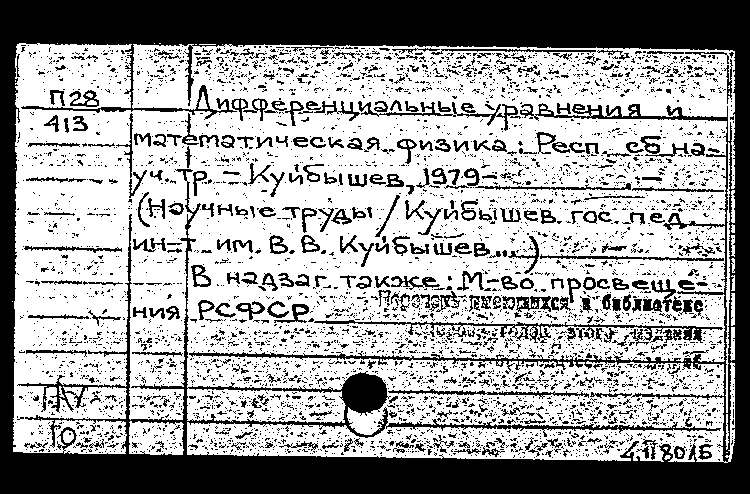 П28
413
Дифференциальные уравнения и
математическая физика: Респ. сб на-
уч. тр. – Куйбышев, 1979–
(Научные труды / Куйбышев. гос. пед.
ин-т им. В. В. Куйбышев...)
В надзаг. также: М-во просвеще-
ния РСФСР.
имеющихся в библиотеке
этого издания
10